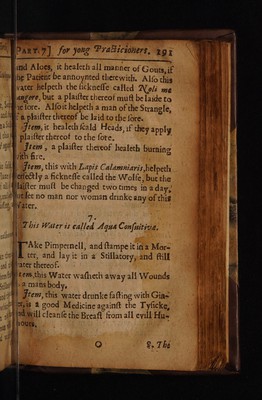 PART. 7] for yong Practicioners. 191
and Aloes, it healeth all manner of Gouts, if
the Patient be annoynted therewith. Also this
water helpeth the sicknesse called Noli me
tangere, but a plaister thereof must be laide to
the sore. Also it helpeth a man of the Strangle,
if a plaister thereof be laid to the sore.
Item, it healeth scald Heads, if they apply
a plaister thereof to the sore.
Item, a plaister thereof healeth burning
with fire.
Item, this with Lapis Calaminiaris, helpeth
perfectly a sicknesse called the Wolfe, but the
plaister must be changed two times in a day,
but let no man nor woman drinke any of this
Water.
7.
This Water is called Aqua Consuitiva.
TAke Pimpernell, and stampe it in a Mor-
ter, and lay it in a Stillatory, and still
water thereof.
Item, this Water washeth away all Wounds
a mans body.
Item, this water drunke fasting with Gin-
er, is a good Medicine against the Tysicke,
and will cleanse the Breast from all evill Hu-
mours.
O 8. The